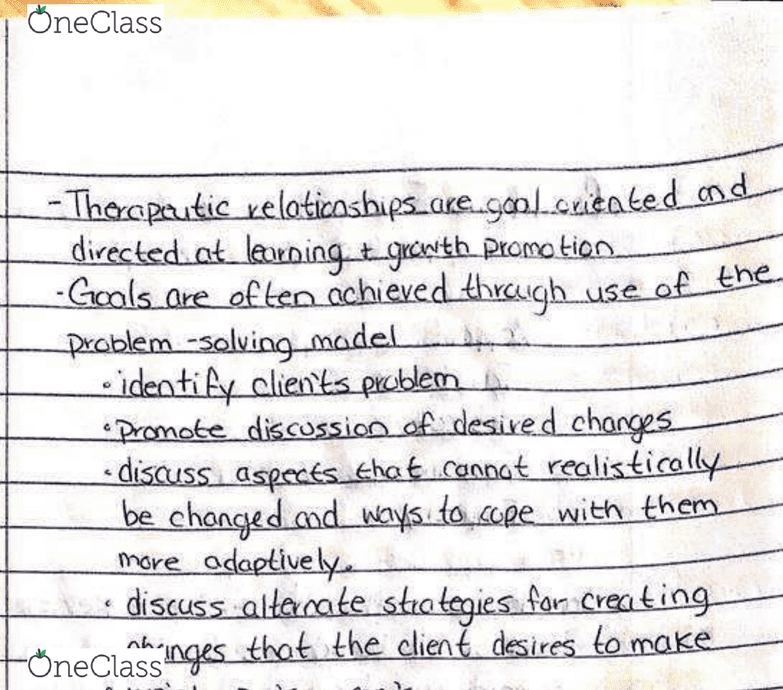 OneClass
- Therapeutic relationships are goal oriented and
directed at learning + growth promotion
- Goals are often achieved through use of the
problem-solving model
• identify client's problem
• promote discussion of desired changes
• discuss aspects that cannot realistically
be changed and ways to cope with them
more adaptively.
• discuss alternate strategies for creating
changes that the client desires to make
OneClass